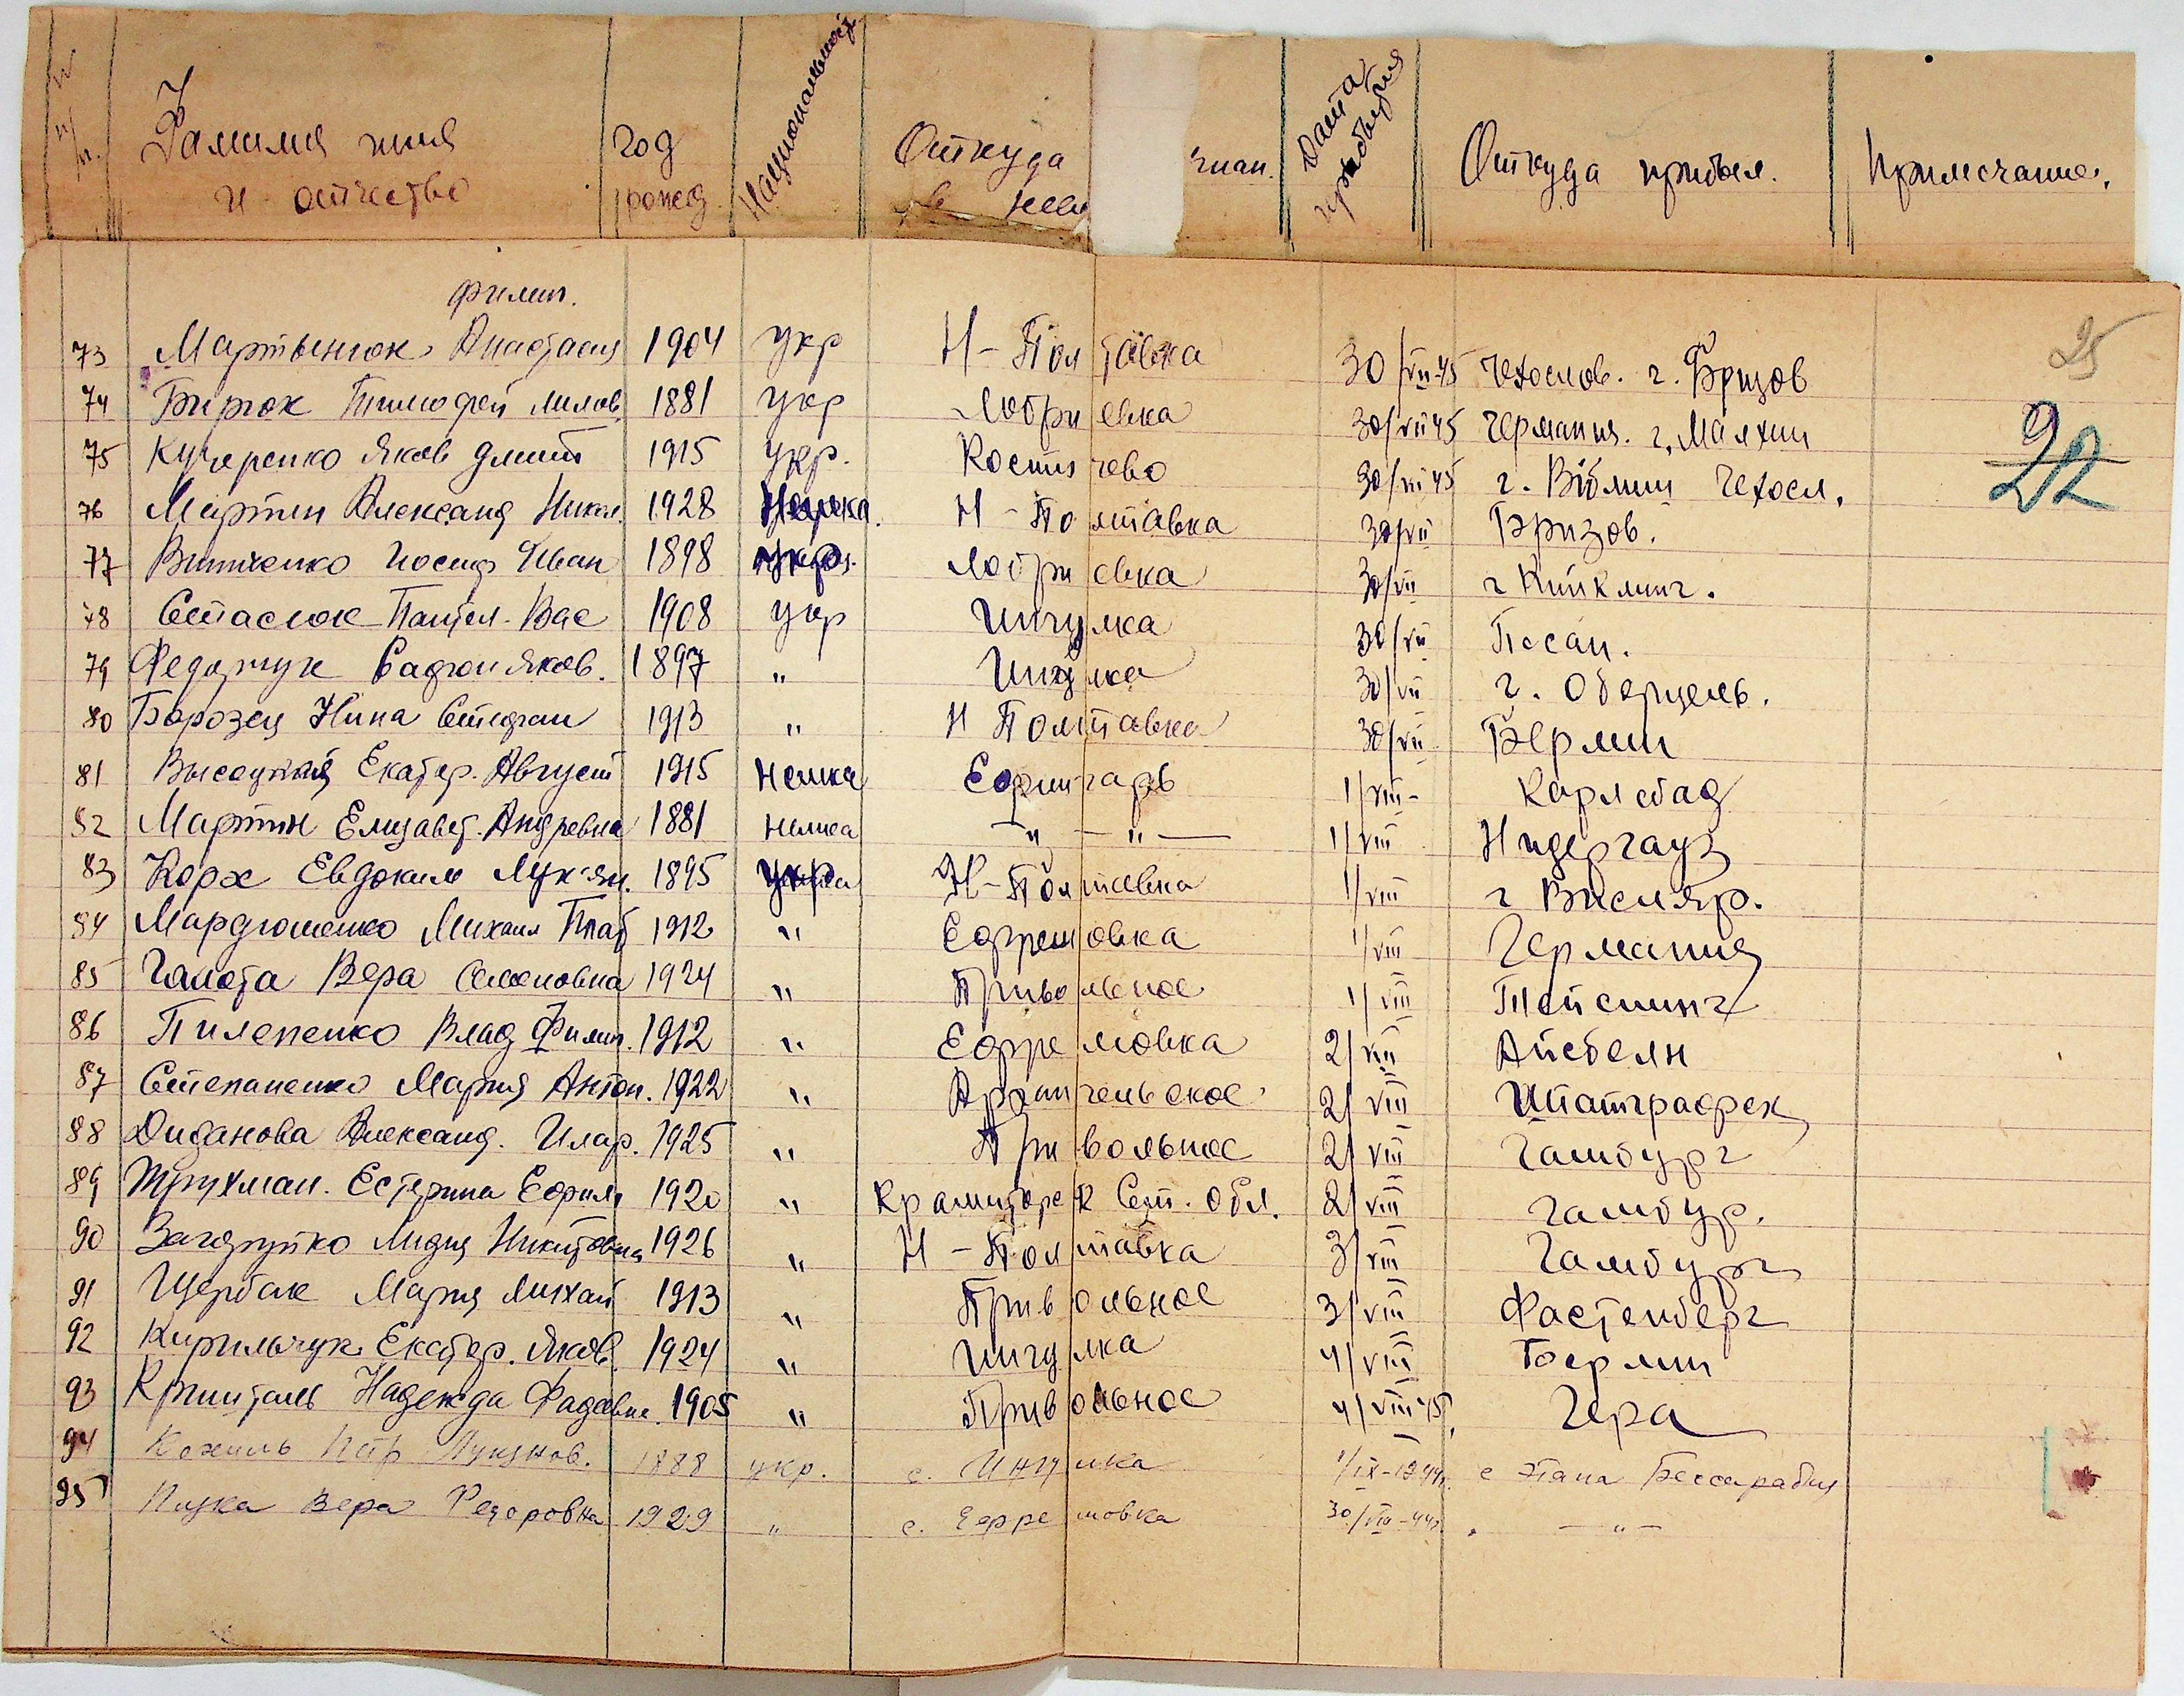 № п/п. Фамилия имя и отчество Год рожд Национальност Откуда Дата прибытия Откуда прибыл. Примечание.
25
22
филип.
73 Мартынюк Анастасия 1904 укр Н-Полтавка 30/VII-45 Чехослов. г. Бризов
74 Бирюк Тимофей 1881 укр Лобриевка 30/VII 45 Германия. г. Малхин
75 Кучеренко Яков Дмит 1915 укр. Костычево 30/VII 45 г. Чехосл.
76 Мартин Александ Никол. 1928 Немка. Н-Полтавка 30/VII Бризов.
77 Винниченко Иосиф Иван 1898 Лобриевка 30/VII г
78 Стасюк Пантел. Вас 1908 укр Ингулка 30/VII Пссан.
79 Федорчук Яков. 1897 " Ингулка 30/VII г. Оберцель.
80 Борозец Нина Стефан 1913 " Н Полтавка 30/VII Берлин
81 Высоцкая Екатер. Август 1915 Немка Ефингарь 1/VIII- Карлсбад
82 Мартин Елизавет. Андревна 1881 немка —"— —"— 1/VIII Нидергауз
83 Корж Евдоким Лукян. 1895 укр Н-Полтавка 1/VIII г
84 Мардюшенко Михаил Плат 1912 " Ефремовка 1/VIII Германия
85 Галота Вера Семеновна 1924 " Привольное 1/VIII
86 Пилепенко Влад Филип. 1912 " Ефремовка 2/VIII Айсбелн
87 Степаненко Мария Антон. 1922 " 2/VIII Штатграфрек
88 Диданова Александ. Илар. 1925 " Привольное 2/VIII Гамбург
89 Трухман. Естерина Ефим. 1920 " 2/VIII Гамбур.
90 Загоруйко Лидия Никитовна 1926 " Н-Полтавка 3/VIII Гамбург
91 Щербак Мария Михай 1913 " Привольное 3/VIII Фастенберг
92 Кирильчук Екатер. Яков. 1924 " Ингулка 4/VIII Берлин
93 Кришталь Надежда Фадеевна. 1905 " Привольное 4/VIII 45 Гера
94 Лукянов. 1888 укр. с. Ингулка 1/IX-1944г. с этапа Бессарабия
95 Вера Федоровна 1929 " с. Ефремовка 30/VIII-44г. —"—